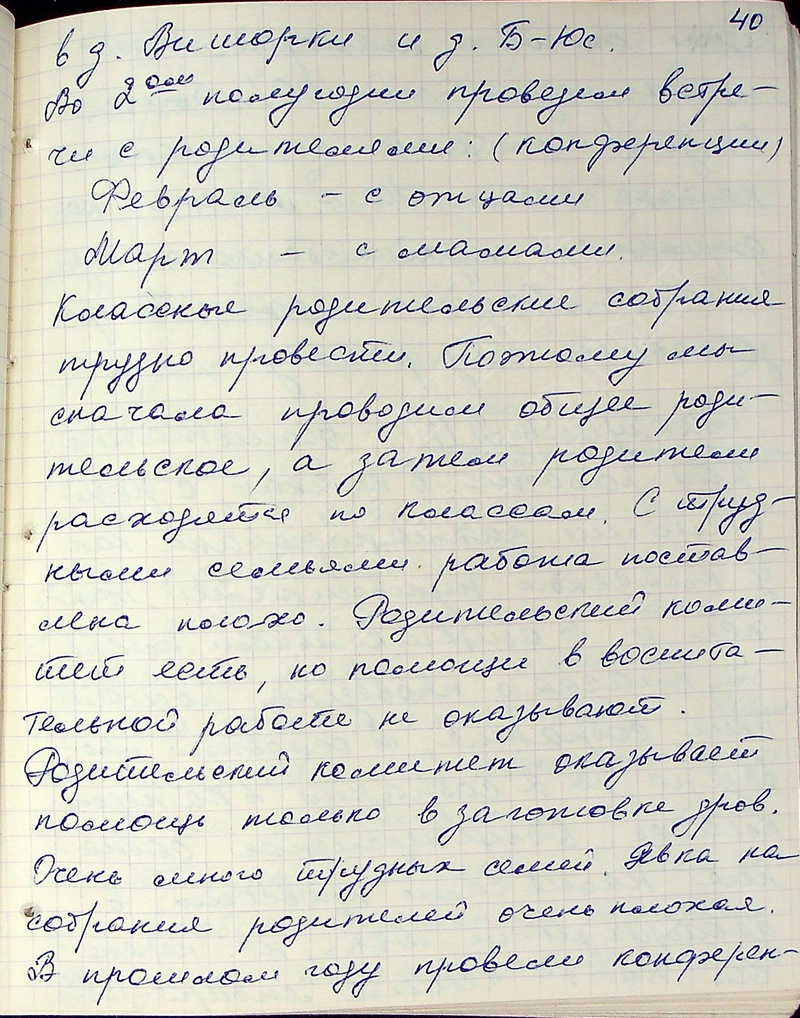 40
в д. Вишорки и д. Б-Юс.
Во 2ом полугодии проведем встре-
чи с родителями: (конференции)
Февраль - с отцами
Март - с мамами.
Классные родительские собрания
трудно провести. Поэтому мы
сначала проводим общее роди-
тельское, а затем родители
расходятся по классам. С труд-
ными семьями работа постав-
лена плохо. Родительский коми-
тет есть, но помощи в воспита-
тельной работе не оказывают.
Родительский комитет оказывает
помощь только в заготовке дров.
Очень много трудных семей. Явка на
собрания родителей очень плохая.
В прошлом году провели конферен-